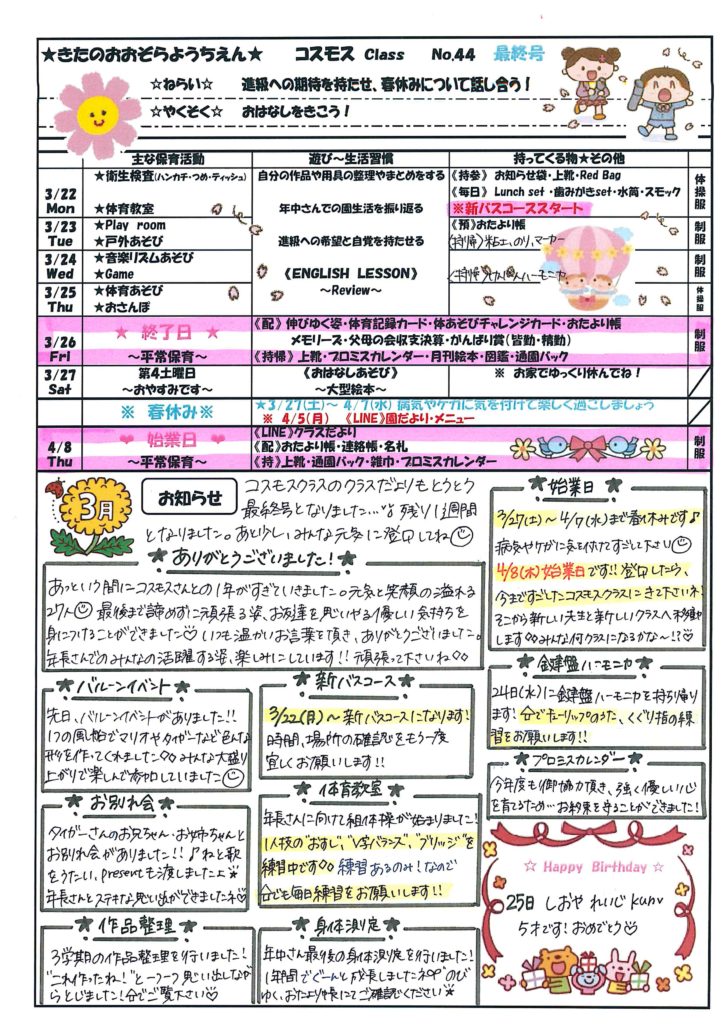 ★きたのおおぞらようちえん★ コスモス Class No.44 最終号
☆ねらい☆ 進級への期待を持たせ、春休みについて話し合う！
☆やくそく☆ おはなしをきこう！
主な保育活動 遊び～生活習慣 持ってくる物★その他
3/22 Mon
★衛生検査(ハンカチ・つめ・ティッシュ)
★体育教室
自分の作品や用具の整理やまとめをする
年中さんでの園生活を振り返る
《持参》 お知らせ袋・上靴・Red Bag
《毎日》 Lunch set ・歯みがきset・水筒・スモック
※新バスコーススタート
体操服
3/23 Tue
★Play room
★戸外あそび
進級への希望と自覚を持たせる
《預》おたより帳
《持帰》粘土、のり、マーカー
制服
3/24 Wed
★音楽リズムあそび
★Game
《ENGLISH LESSON》
～Review～
《持帰》けんばんハーモニカ
制服
3/25 Thu
★体育あそび
★おさんぽ
体操服
3/26 Fri
★ 終了日 ★
～平常保育～
《配》 伸びゆく姿・体育記録カード・体あそびチャレンジカード・おたより帳
メモリーズ・父母の会収支決算・がんばり賞(皆勤・精勤)
《持帰》 上靴・プロミスカレンダー・月刊絵本・図鑑・通園バック
制服
3/27 Sat
第4土曜日
～おやすみです～
《おはなしあそび》
～大型絵本～
※ お家でゆっくり休んでね！
※ 春休み※
★3/27(土)～ 4/7(水) 病気やケガに気を付けて楽しく過ごしましょう
※ 4/5(月) 《LINE》園だより・メニュー
4/8 Thu
❤ 始業日 ❤
～平常保育～
《LINE》クラスだより
《配》おたより帳・連絡帳・名札
《持》上靴・通園バック・雑巾・プロミスカレンダー
制服
3月
お知らせ
コスモスクラスのクラスだよりもとうとう
最終号となりました…残り1週間
となりました。あと少しみんな元気に登口してね
★ありがとうございました！★
あっという間にコスモスさんとの1年がすぎていきました。元気と笑顔の溢れる
27人 最後まで諦めずに頑張る姿、お友達を思いやる優しい気持ちを
身につけることができました♡いつも温かいお言葉を頂き、ありがとうございました。
年長さんでのみんなの活躍する姿、楽しみにしています!! 頑張って下さいね
★始業日★
3/27(土)～4/7(水)まで春休みです♪
病気やケガに気を付けてすごして下さい
4/8(木)始業日です!! 登口したら、
今まですごしたコスモスクラスにきて下さいネ!
そこから新しい先生と新しいクラスへ移動
します みんな何クラスになるかな～!?
★バルーンイベント★
先日、バルーンイベントがありました!!
1つの風船でマリオやタイガーなど色んな
形を作ってくれました みんな大盛り
上がりで楽しんで参加していました
★新バスコース★
3/22(月)～新バスコースになります!
時間、場所の確認をもう一度
宜しくお願いします!!
★鍵盤ハーモニカ★
24日(水)に鍵盤ハーモニカを持ち帰り
ます! 口でチューリップのうた、くぐり指の練
習をお願いします!!
★お別れ会★
タイガーさんのお兄ちゃん・お姉ちゃんと
お別れ会がありました!! ♪ねと歌
をうたい、presentも渡しましたよ
年長さんとステキな思い出ができましたネ
★体育教室★
年長さんに向けて組体操が始まりました!
1人技の"おすし"、"V字バランス"、"ブリッジ"を
練習中です 練習あるのみ! なので
口でも毎日練習をお願いします!!
★プロミスカレンダー★
今年度も御協力頂き、強く優しい心
を育てるため…お約束を守ることができました!
☆ Happy Birthday ☆
25日 しおや れい心 kun
5才です! おめでとう
★作品整理★
3学期の作品整理を行いました!
"これ作ったね!"と一つ一つ思い出しなが
らとじました! 口でご覧下さい
★身体測定★
年中さん最後の身体測定を行いました!
1年間でぐーんと成長しましたネ のび
ゆく、おたより帳にてご確認ください